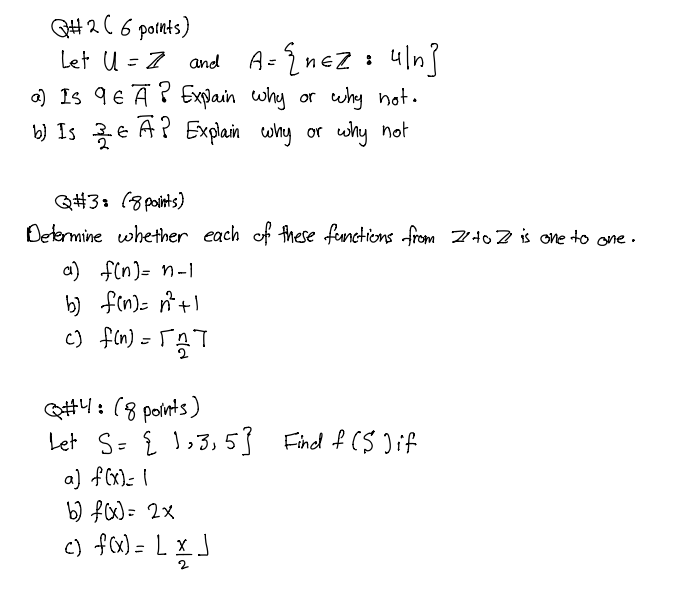 Q#2 (6 points)
Let U = ℤ and A = { n∈ℤ : 4|n}
a) Is 9 ∈ A̅ ? Explain why or why not.
b) Is 3/2 ∈ A̅? Explain why or why not
Q#3: (8 points)
Determine whether each of these functions from ℤ to ℤ is one to one.
a) f(n) = n-1
b) f(n) = n²+1
c) f(n) = ⌈n/2⌉
Q#4: (8 points)
Let S = { 1,3,5} Find f(S) if
a) f(x) = 1
b) f(x) = 2x
c) f(x) = ⌊x/2⌋